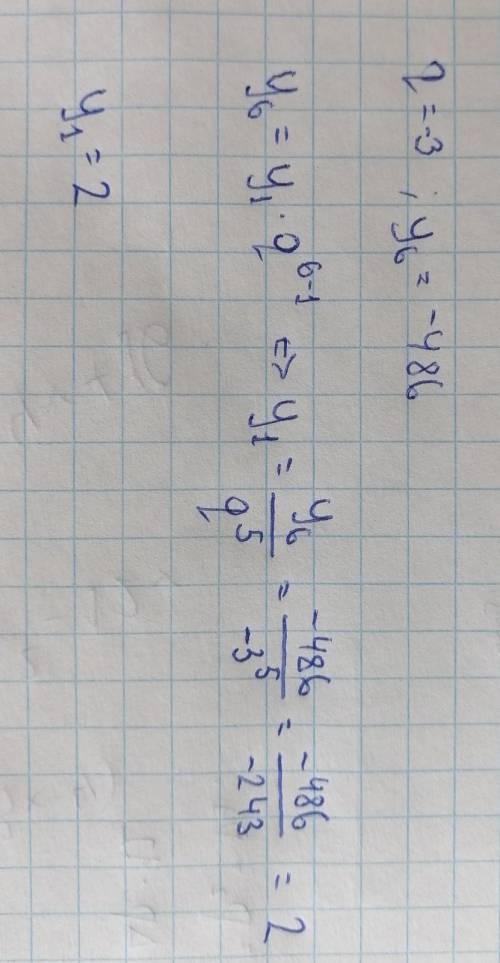 q = -3 ; y₆ = -486
y₆ = y₁ · q⁶⁻¹ ⇔ y₁ = y₆/q⁵ = -486/-3⁵ = -486/-243 = 2
y₁ = 2